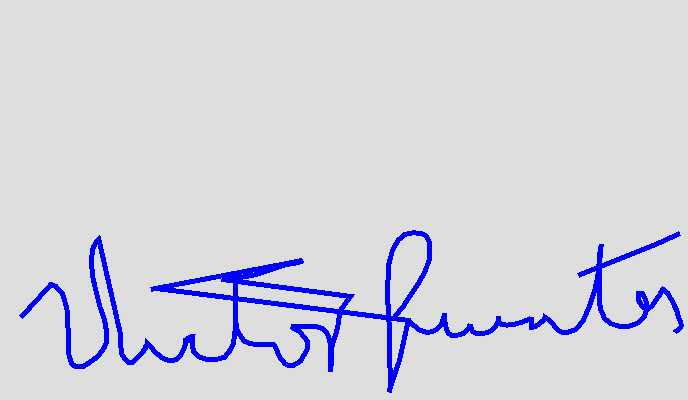 Victor Fuentes